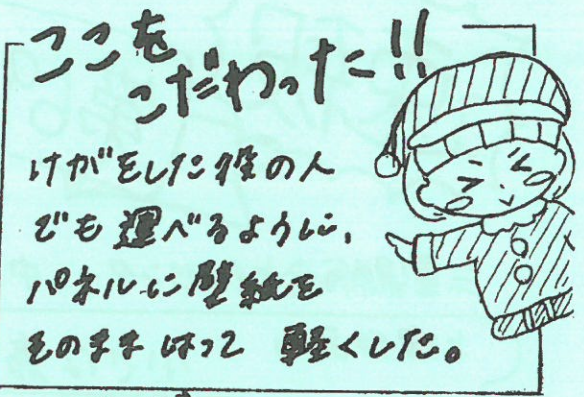 ここを
こだわった!!
けがをした役の人
でも運べるように、
パネルに壁紙を
そのままはって 軽くした。